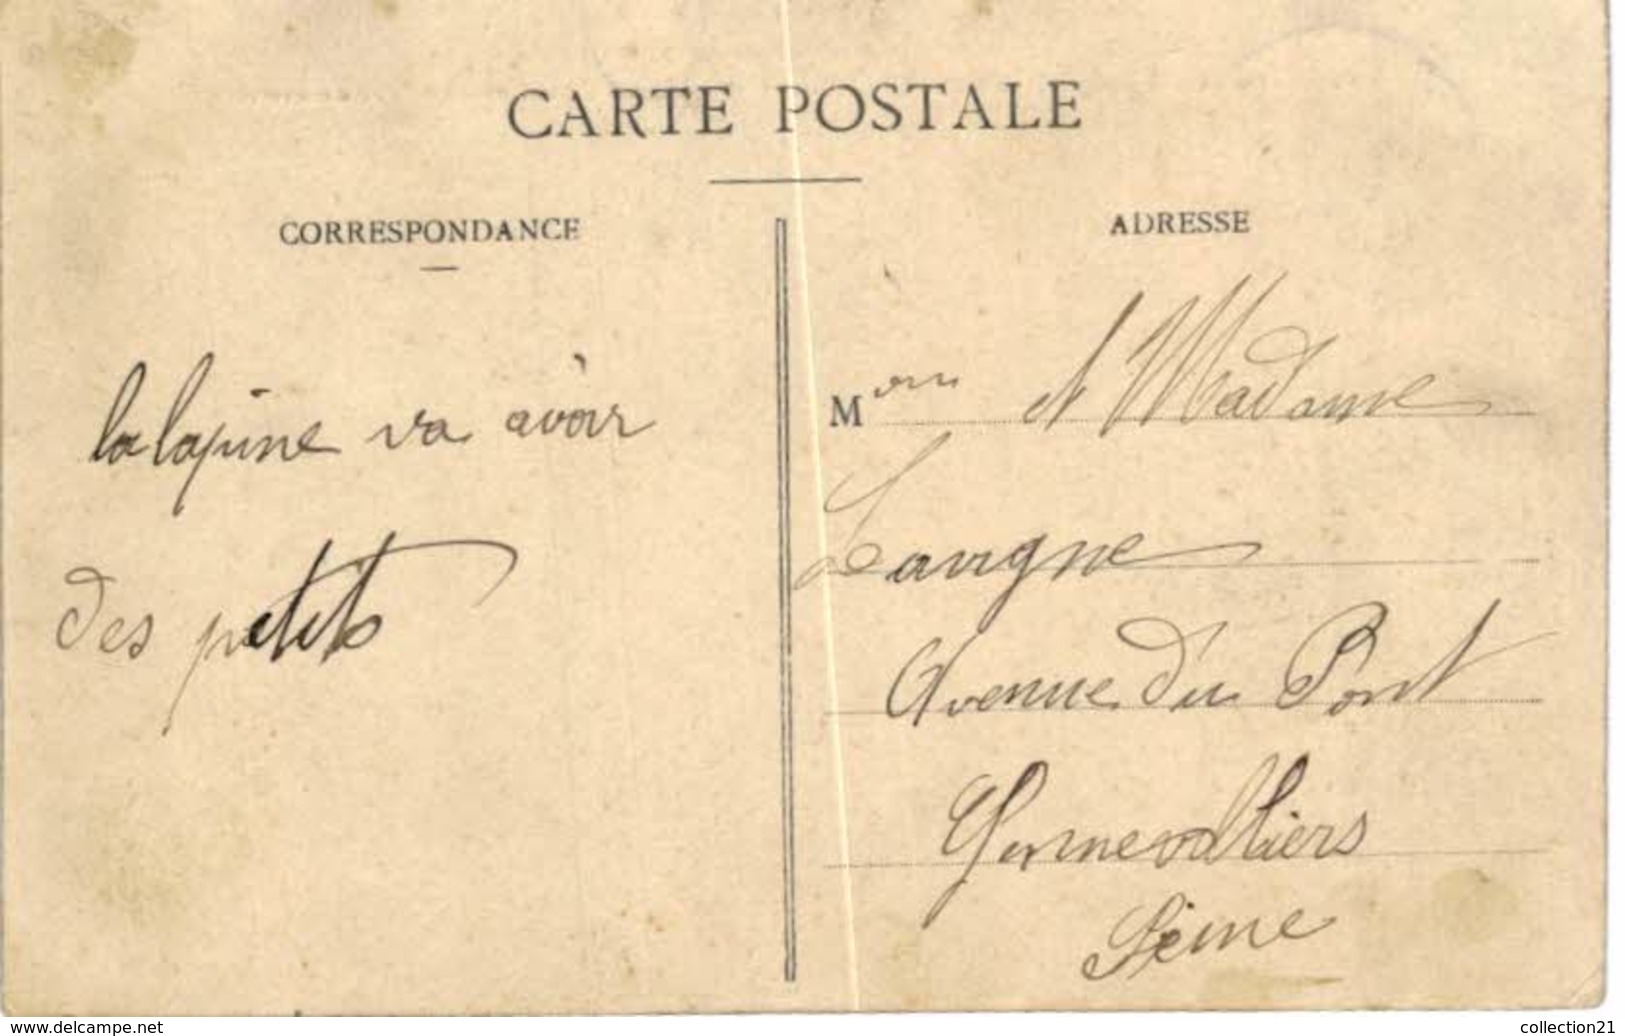 CARTE POSTALE
CORRESPONDANCE
la lapine va avoir
des petits
ADRESSE
Mon et Madame
Lavigne
Avenue du Pont
Gennevilliers
Seine
www.delcampe.net
collection21